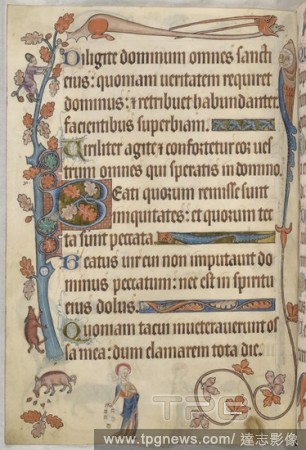 Diligite dominum omnes sancti
eius: quoniam ueritatem requiret
dominus: ⁊ retribuet habundanter
facientibus superbiam.
Uiriliter agite ⁊ confortetur cor ues
trum omnes qui speratis in domino.
Beati quorum remisse sunt
iniquitates: et quorum tec
ta sunt peccata.
Beatus uir cui non imputauit do
minus peccatum: nec est in spiritu
eius dolus.
Quoniam tacui inueterauerunt os
sa mea: dum clamarem tota die.
TPG
www.tpgnews.com / 達志影像